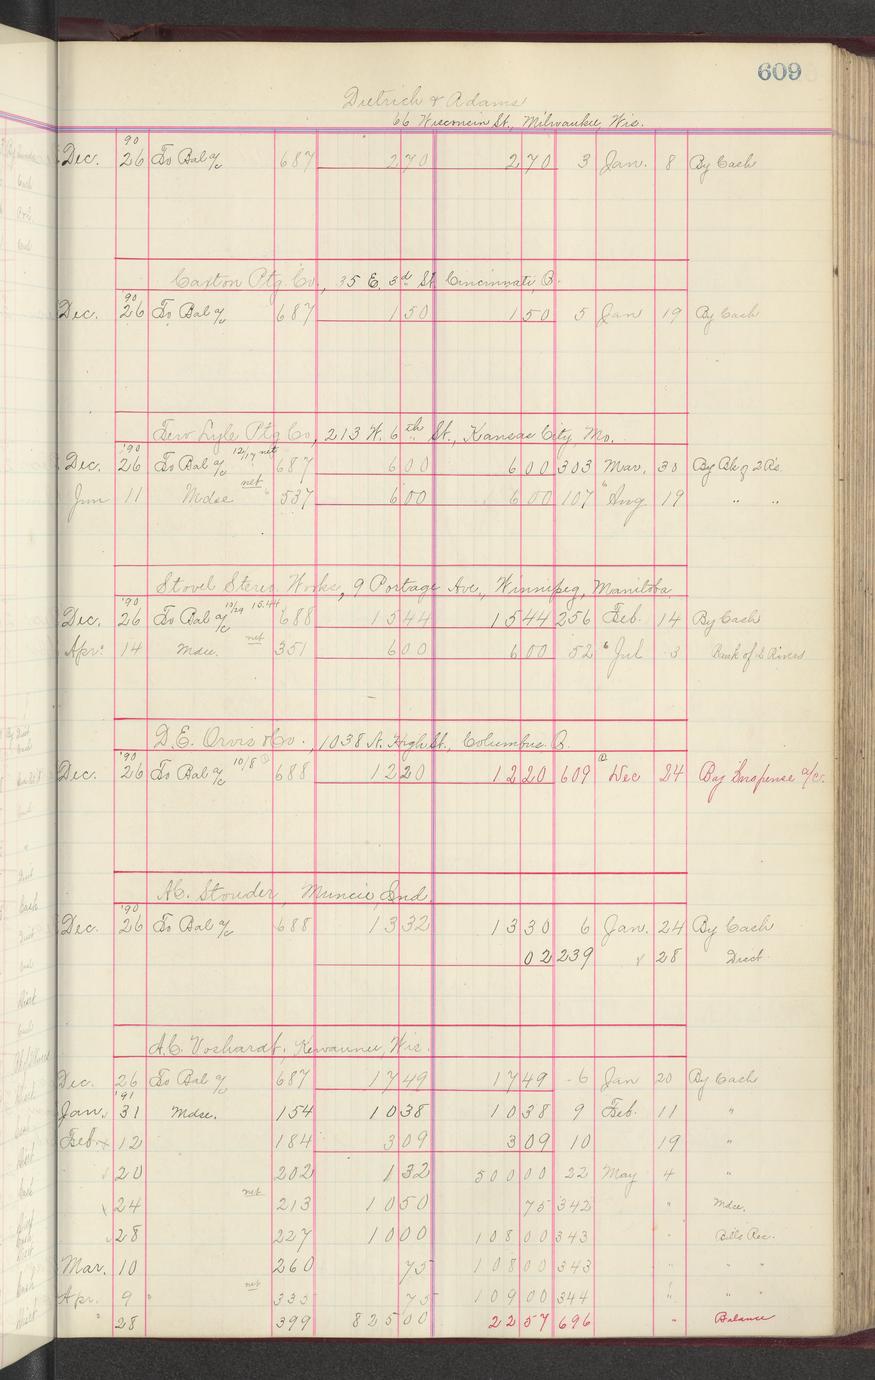 609
Dietrich & Adams
66 Wisconsin St., Milwaukee, Wis.
'90
Dec. 26 To Bal a/c 687 2 70 2 70 3 Jan. 8 By Cash
Caxton Ptg. Co., 35 E. 3rd St. Cincinnati O.
'90
Dec. 26 To Bal a/c 687 1 50 1 50 5 Jan 19 By Cash
Ptg Co, 213 W. 6th St., Kansas City Mo.
'90
Dec. 26 To Bal a/c 12/17 net 687 6 00 6 00 303 Mar. 30 By Bk of 2 Rs
Jun 11 Mdse net 537 6 00 6 00 107 " Aug 19 " "
Stovel Stereo. Works, 9 Portage Ave., Winnipeg, Manitoba
'90
Dec. 26 To Bal a/c 15.44 688 15 44 15 44 256 Feb. 14 By Cash
Apr. 14 Mdse. net 351 6 00 6 00 52 " Jul 3 Bank of 2 Rivers
D. E. Orvis & Co., 1038 N. High St., Columbus. O.
'90
Dec. 26 To Bal a/c 10/8 688 12 20 12 20 609 Dec 24 By Suspense a/c.
A. C. Stouder, Muncie, Ind.
'90
Dec. 26 To Bal a/c 688 13 32 13 30 6 Jan. 24 By Cash
02 239 " 28 Disct
A. C. Voshardt. Kewaunee, Wis.
Dec. 26 To Bal a/c 687 17 49 17 49 6 Jan 20 By Cash
'91
Jan. 31 Mdse. 154 10 38 10 38 9 Feb. 11 "
Feb. 12 184 3 09 3 09 10 19 "
20 202 1 32 500 00 22 May 4 "
24 net 213 10 50 75 342 " Mdse.
28 227 10 00 108 00 343 " Bills Rec.
Mar. 10 260 75 108 00 343 " " "
Apr. 9 net 335 75 109 00 344 " "
" 28 399 825 00 22 57 696 " Balance